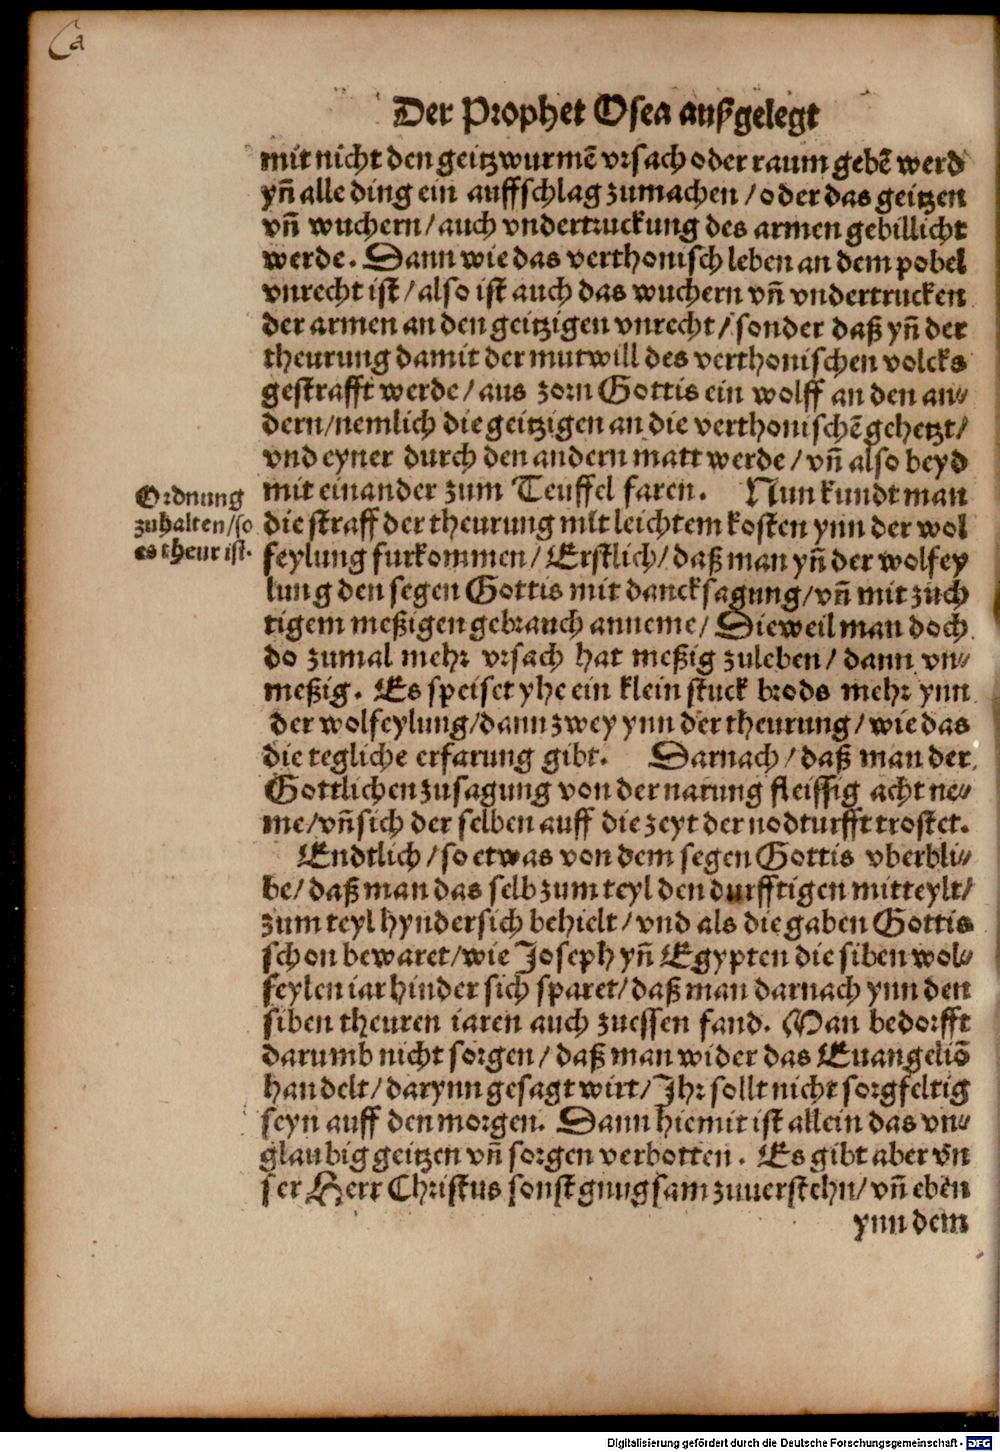 Ca
Der Prophet Osea außgelegt
mit nicht den geitzwurmē vrsach oder raum gebē werd
yñ alle ding ein auffschlag zumachen / oder das geitzen
vñ wuchern / auch vndertruckung des armen gebillicht
werde. Dann wie das verthonisch leben an dem pobel
vnrecht ist / also ist auch das wuchern vñ vndertrucken
der armen an den geitzigen vnrecht / sonder daß yñ der
theurung damit der mutwill des verthonischen volcks
gestrafft werde / aus zorn Gottis ein wolff an den an⸗
dern/nemlich die geitzigen an die verthonischē gehetzt/
vnd eyner durch den andern matt werde / vñ also beyd
mit einander zum Teuffel faren. Nun kundt man
die straff der theurung mit leichtem kosten ynn der wol
feylung furkommen / Erstlich / daß man yñ der wolfey
lung den segen Gottis mit dancksagung/vñ mit zuch
tigem meßigen gebrauch anneme / Dieweil man doch
do zumal mehr vrsach hat meßig zuleben / dann vn⸗
meßig. Es speiset yhe ein klein stuck brods mehr ynn
der wolfeylung/dann zwey ynn der theurung / wie das
die tegliche erfarung gibt. Darnach / daß man der
Gottlichen zusagung von der narung fleissig acht ne⸗
me/vñ sich der selben auff die zeyt der nodturfft trostet.
Endtlich / so etwas von dem segen Gottis vberbli⸗
be / daß man das selb zum teyl den durfftigen mitteylt/
zum teyl hyndersich behielt / vnd als die gaben Gottis
schon bewaret/wie Joseph yñ Egypten die siben wol⸗
feylen iar hinder sich sparet/daß man darnach ynn den
siben theuren iaren auch zuessen fand. Man bedorfft
darumb nicht sorgen / daß man wider das Euangeliō
handelt / darynn gesagt wirt / Ihr sollt nicht sorgfeltig
seyn auff den morgen. Dann hiemit ist allein das vn⸗
glaubig geitzen vñ sorgen verbotten. Es gibt aber vn
ser Herr Christus sonst gnugsam zuuerstehn / vñ eben
ynn dem
Ordnung
zuhalten/so
es theur ist.
Digitalisierung gefördert durch die Deutsche Forschungsgemeinschaft - DFG